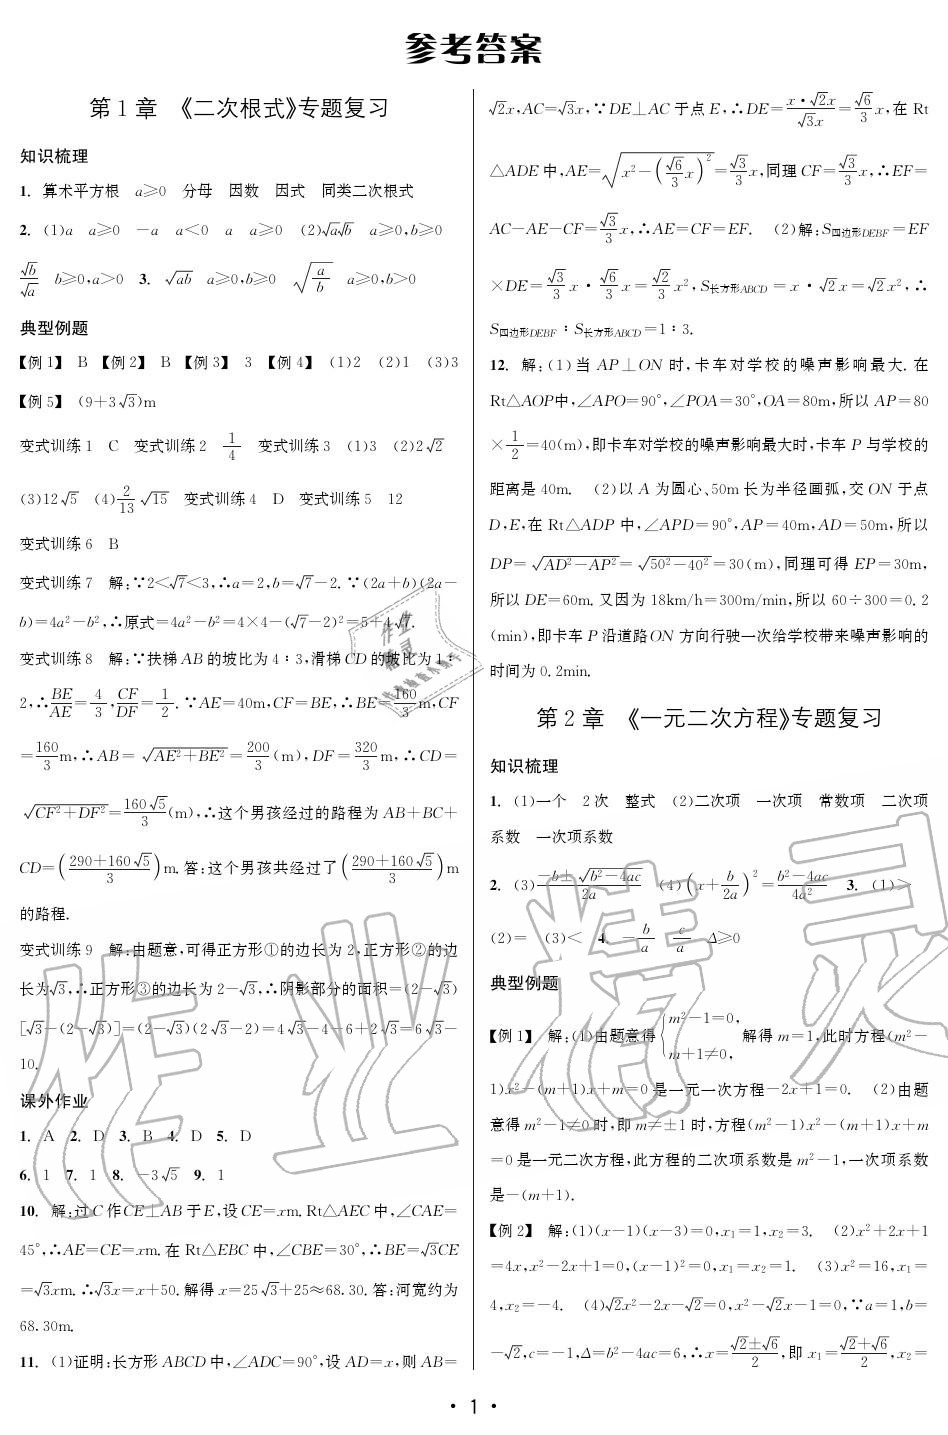 参考答案
第 1 章 《二次根式》专题复习
知识梳理
1. 算术平方根 a≥0 分母 因数 因式 同类二次根式
2. (1)a a≥0 -a a<0 a a≥0 (2)√a√b a≥0,b≥0
√b/√a b≥0,a>0 3. √ab a≥0,b≥0 √(a/b) a≥0,b>0
典型例题
【例 1】 B 【例 2】 B 【例 3】 3 【例 4】 (1)2 (2)1 (3)3
【例 5】 (9+3√3)m
变式训练 1 C 变式训练 2 1/4 变式训练 3 (1)3 (2)2√2
(3)12√5 (4)2/13 √15 变式训练 4 D 变式训练 5 12
变式训练 6 B
变式训练 7 解:∵2<√7<3,∴a=2,b=√7-2. ∵(2a+b)(2a-
b)=4a²-b²,∴原式=4a²-b²=4×4-(√7-2)²=5+4√7.
变式训练 8 解:∵扶梯 AB 的坡比为 4∶3,滑梯 CD 的坡比为 1∶
2,∴BE/AE=4/3,CF/DF=1/2. ∵AE=40m,CF=BE,∴BE=160/3 m,CF
=160/3 m,∴AB=√(AE²+BE²)=200/3(m),DF=320/3 m,∴CD=
√(CF²+DF²)=160√5/3(m),∴这个男孩经过的路程为 AB+BC+
CD=((290+160√5)/3)m. 答:这个男孩共经过了((290+160√5)/3)m
的路程.
变式训练 9 解:由题意,可得正方形①的边长为 2,正方形②的边
长为√3,∴正方形③的边长为 2-√3,∴阴影部分的面积=(2-√3)
[√3-(2-√3)]=(2-√3)(2√3-2)=4√3-4-6+2√3=6√3-
10.
课外作业
1. A 2. D 3. B 4. D 5. D
6. 1 7. 1 8. -3√5 9. 1
10. 解:过 C 作 CE⊥AB 于 E,设 CE=xm. Rt△AEC 中,∠CAE=
45°,∴AE=CE=xm. 在 Rt△EBC 中,∠CBE=30°,∴BE=√3CE
=√3xm. ∴√3x=x+50. 解得 x=25√3+25≈68.30. 答:河宽约为
68.30m.
11. (1)证明:长方形 ABCD 中,∠ADC=90°,设 AD=x,则 AB=
√2x,AC=√3x,∵DE⊥AC 于点 E,∴DE=(x·√2x)/(√3x)=√6/3 x,在 Rt
△ADE 中,AE=√(x²-(√6/3 x)²)=√3/3 x,同理 CF=√3/3 x,∴EF=
AC-AE-CF=√3/3 x,∴AE=CF=EF. (2)解:S四边形DEBF=EF
×DE=√3/3 x·√6/3 x=√2/3 x²,S长方形ABCD=x·√2x=√2x²,∴
S四边形DEBF∶S长方形ABCD=1∶3.
12. 解:(1)当 AP⊥ON 时,卡车对学校的噪声影响最大. 在
Rt△AOP中,∠APO=90°,∠POA=30°,OA=80m,所以 AP=80
×1/2=40(m),即卡车对学校的噪声影响最大时,卡车 P 与学校的
距离是 40m. (2)以 A 为圆心、50m 长为半径画弧,交 ON 于点
D,E,在 Rt△ADP 中,∠APD=90°,AP=40m,AD=50m,所以
DP=√(AD²-AP²)=√(50²-40²)=30(m),同理可得 EP=30m,
所以 DE=60m. 又因为 18km/h=300m/min,所以 60÷300=0.2
(min),即卡车 P 沿道路 ON 方向行驶一次给学校带来噪声影响的
时间为 0.2min.
第 2 章 《一元二次方程》专题复习
知识梳理
1. (1)一个 2 次 整式 (2)二次项 一次项 常数项 二次项
系数 一次项系数
2. (3)(-b±√(b²-4ac))/2a (4)(x+b/2a)²=(b²-4ac)/4a² 3. (1)>
(2)= (3)< 4. -b/a c/a Δ≥0
典型例题
【例 1】 解:(1)由题意得{m²-1=0, m+1≠0, 解得 m=1,此时方程(m²-
1)x²-(m+1)x+m=0 是一元一次方程-2x+1=0. (2)由题
意得 m²-1≠0 时,即 m≠±1 时,方程(m²-1)x²-(m+1)x+m
=0 是一元二次方程,此方程的二次项系数是 m²-1,一次项系数
是-(m+1).
【例 2】 解:(1)(x-1)(x-3)=0,x₁=1,x₂=3. (2)x²+2x+1
=4x,x²-2x+1=0,(x-1)²=0,x₁=x₂=1. (3)x²=16,x₁=
4,x₂=-4. (4)√2x²-2x-√2=0,x²-√2x-1=0,∵a=1,b=
-√2,c=-1,Δ=b²-4ac=6,∴x=(√2±√6)/2,即 x₁=(√2+√6)/2,x₂=
· 1 ·
作业精灵